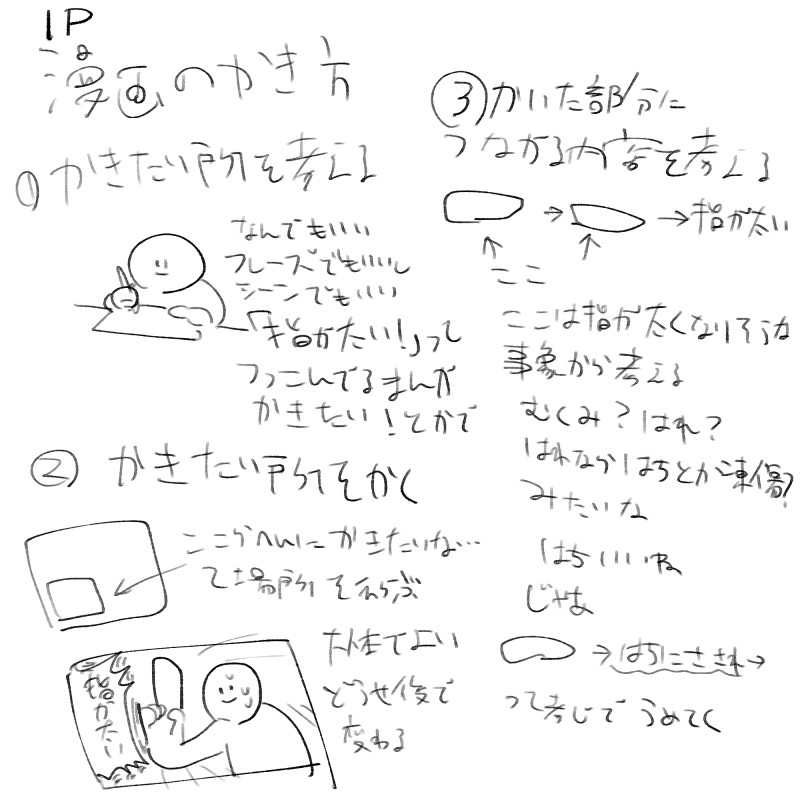 1P
漫画のかき方
①かきたい所を考える
なんでもいい
フレーズでもいいし
シーンでもいい
「指がたい!」って
つっこんでるまんが
かきたい!とかで
②かきたい所をかく
ここらへんにかきたいな…
て場所をえらぶ
指がたい
大体でよい
どうせ後で
変わる
③かいた部分に
つながる内容を考える
→ → 指が太い
↑ ↑
ここ
ここは指が太くなりそうな
事象から考える
むくみ?はれ?
はれならはちとか凍傷?
みたいな
はちいいね
じゃあ
→はちにさされ→
って感じでうめてく